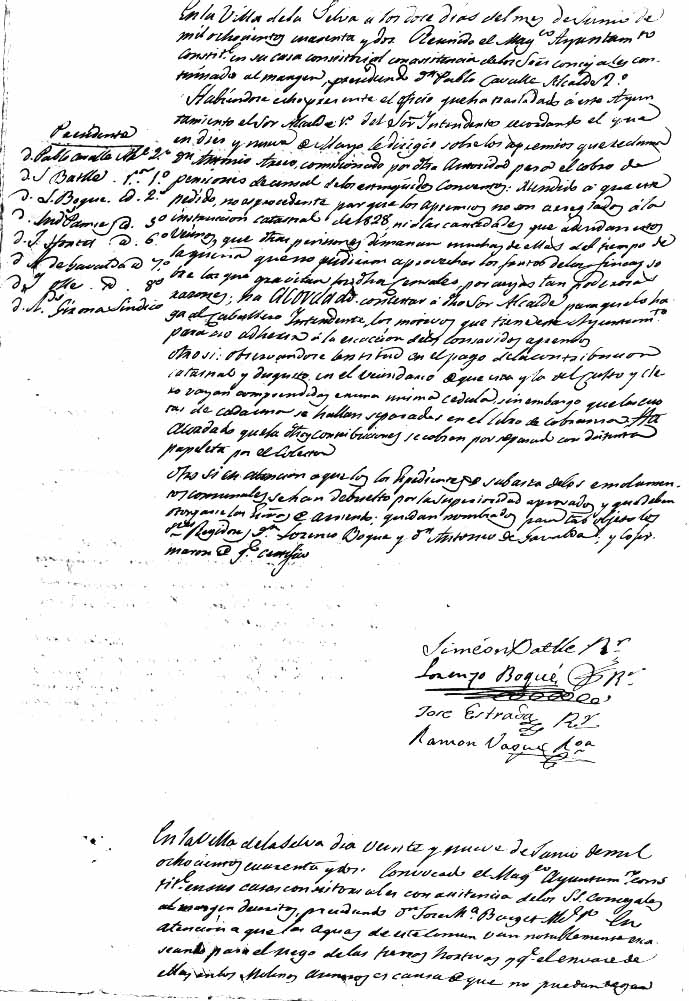 En la Villa de la Selva a los dose dias del mes de Junio de
mil ochocientos cuarenta y dos. Reunido el Magco Ayuntamto
constitl en su casa consistorial con asistencia de los Sres concejales con-
tinuados al margen, presidiendo Dn Pablo Cavallé Alcalde 2º
Habiéndose echo presente el oficio que ha trasladado á este Ayun-
tamiento el Sor Alcalde 1º del Sor Intendente recordando el que
en dies y nueve de Mayo le dirigió sobre los apremios que reclama
dn Antonio comicionado por dha Autoridad para el cobro de
penciones de censal de los estinguidos Conventos: Atendido á que este
pedido, no es procedente por que los apremios no son arreglados á la
instruccion catastral de 1828 ni dhas cantidades que adeudan estos
Vecinos, que dhas penciones dimanan muchas de ellas del tiempo de
la guerra que no pudieron aprovechar los frutos de las fincas so-
bre las que gravitan los dhos censales, por cuyas tan poderosas
razones; ha acordado contestar á dho Sor Alcalde para que lo ha-
ga al Caballero Intendente, los motivos que tiene este Ayuntamto
para no adherir á la execucion de los consavidos apremios
Otro si: observandose lentitud en el pago de la contribucion
catastral y disgusto en el vecindario de que esta y la del Culto y Cle-
ro vayan comprendidas en una misma cedula, sin embargo que las cuo-
tas de cada una se hallan separadas en el libro de cobranza. Ha
acordado que la dhas contribuciones se cobren por separad con distinta
papeleta por el Colector
Otro si en atencion a que los Espedientes de subasta de los emolumen-
tos comunales se han debuelto por la superioridad aprovados y que deben
otorgarse las de arriendo: quedan nombrados para tal objeto los
Regidores Dn Lorenzo Boqué y Dn Antonio de Gavaldá, y lo fir-
maron de qe certifico
Presidente
D. Pablo Cavalle Alc. 2º
d. S. Batlle. 1º
d. L. Boque. d. 2º
d. d. 5º
d. J. d. 6º
d. A. de Gavaldá d 7º
d. d. 8º
d. Girona Sindico
Simeón Batlle Rr
Lorenzo Boqué Rr
Jose Estrada Rr
Ramon Vaqué
En la Villa de la Selva dia veinte y nueve de Junio de mil
ochocientos cuarenta y dos: Convocado el Magco Ayuntamto cons-
titl en sus casas consistoriales con asistencia de los SS. Concejales
al margen descritos, presidiendo dn Jose Ma Alc. 1º En
atención a que las Aguas de este Comun van notablemente esca-
seando para el riego de las tierras hortivas y qe el envase de
ellas en los Molinos Arineros es causa de que no puedan regar